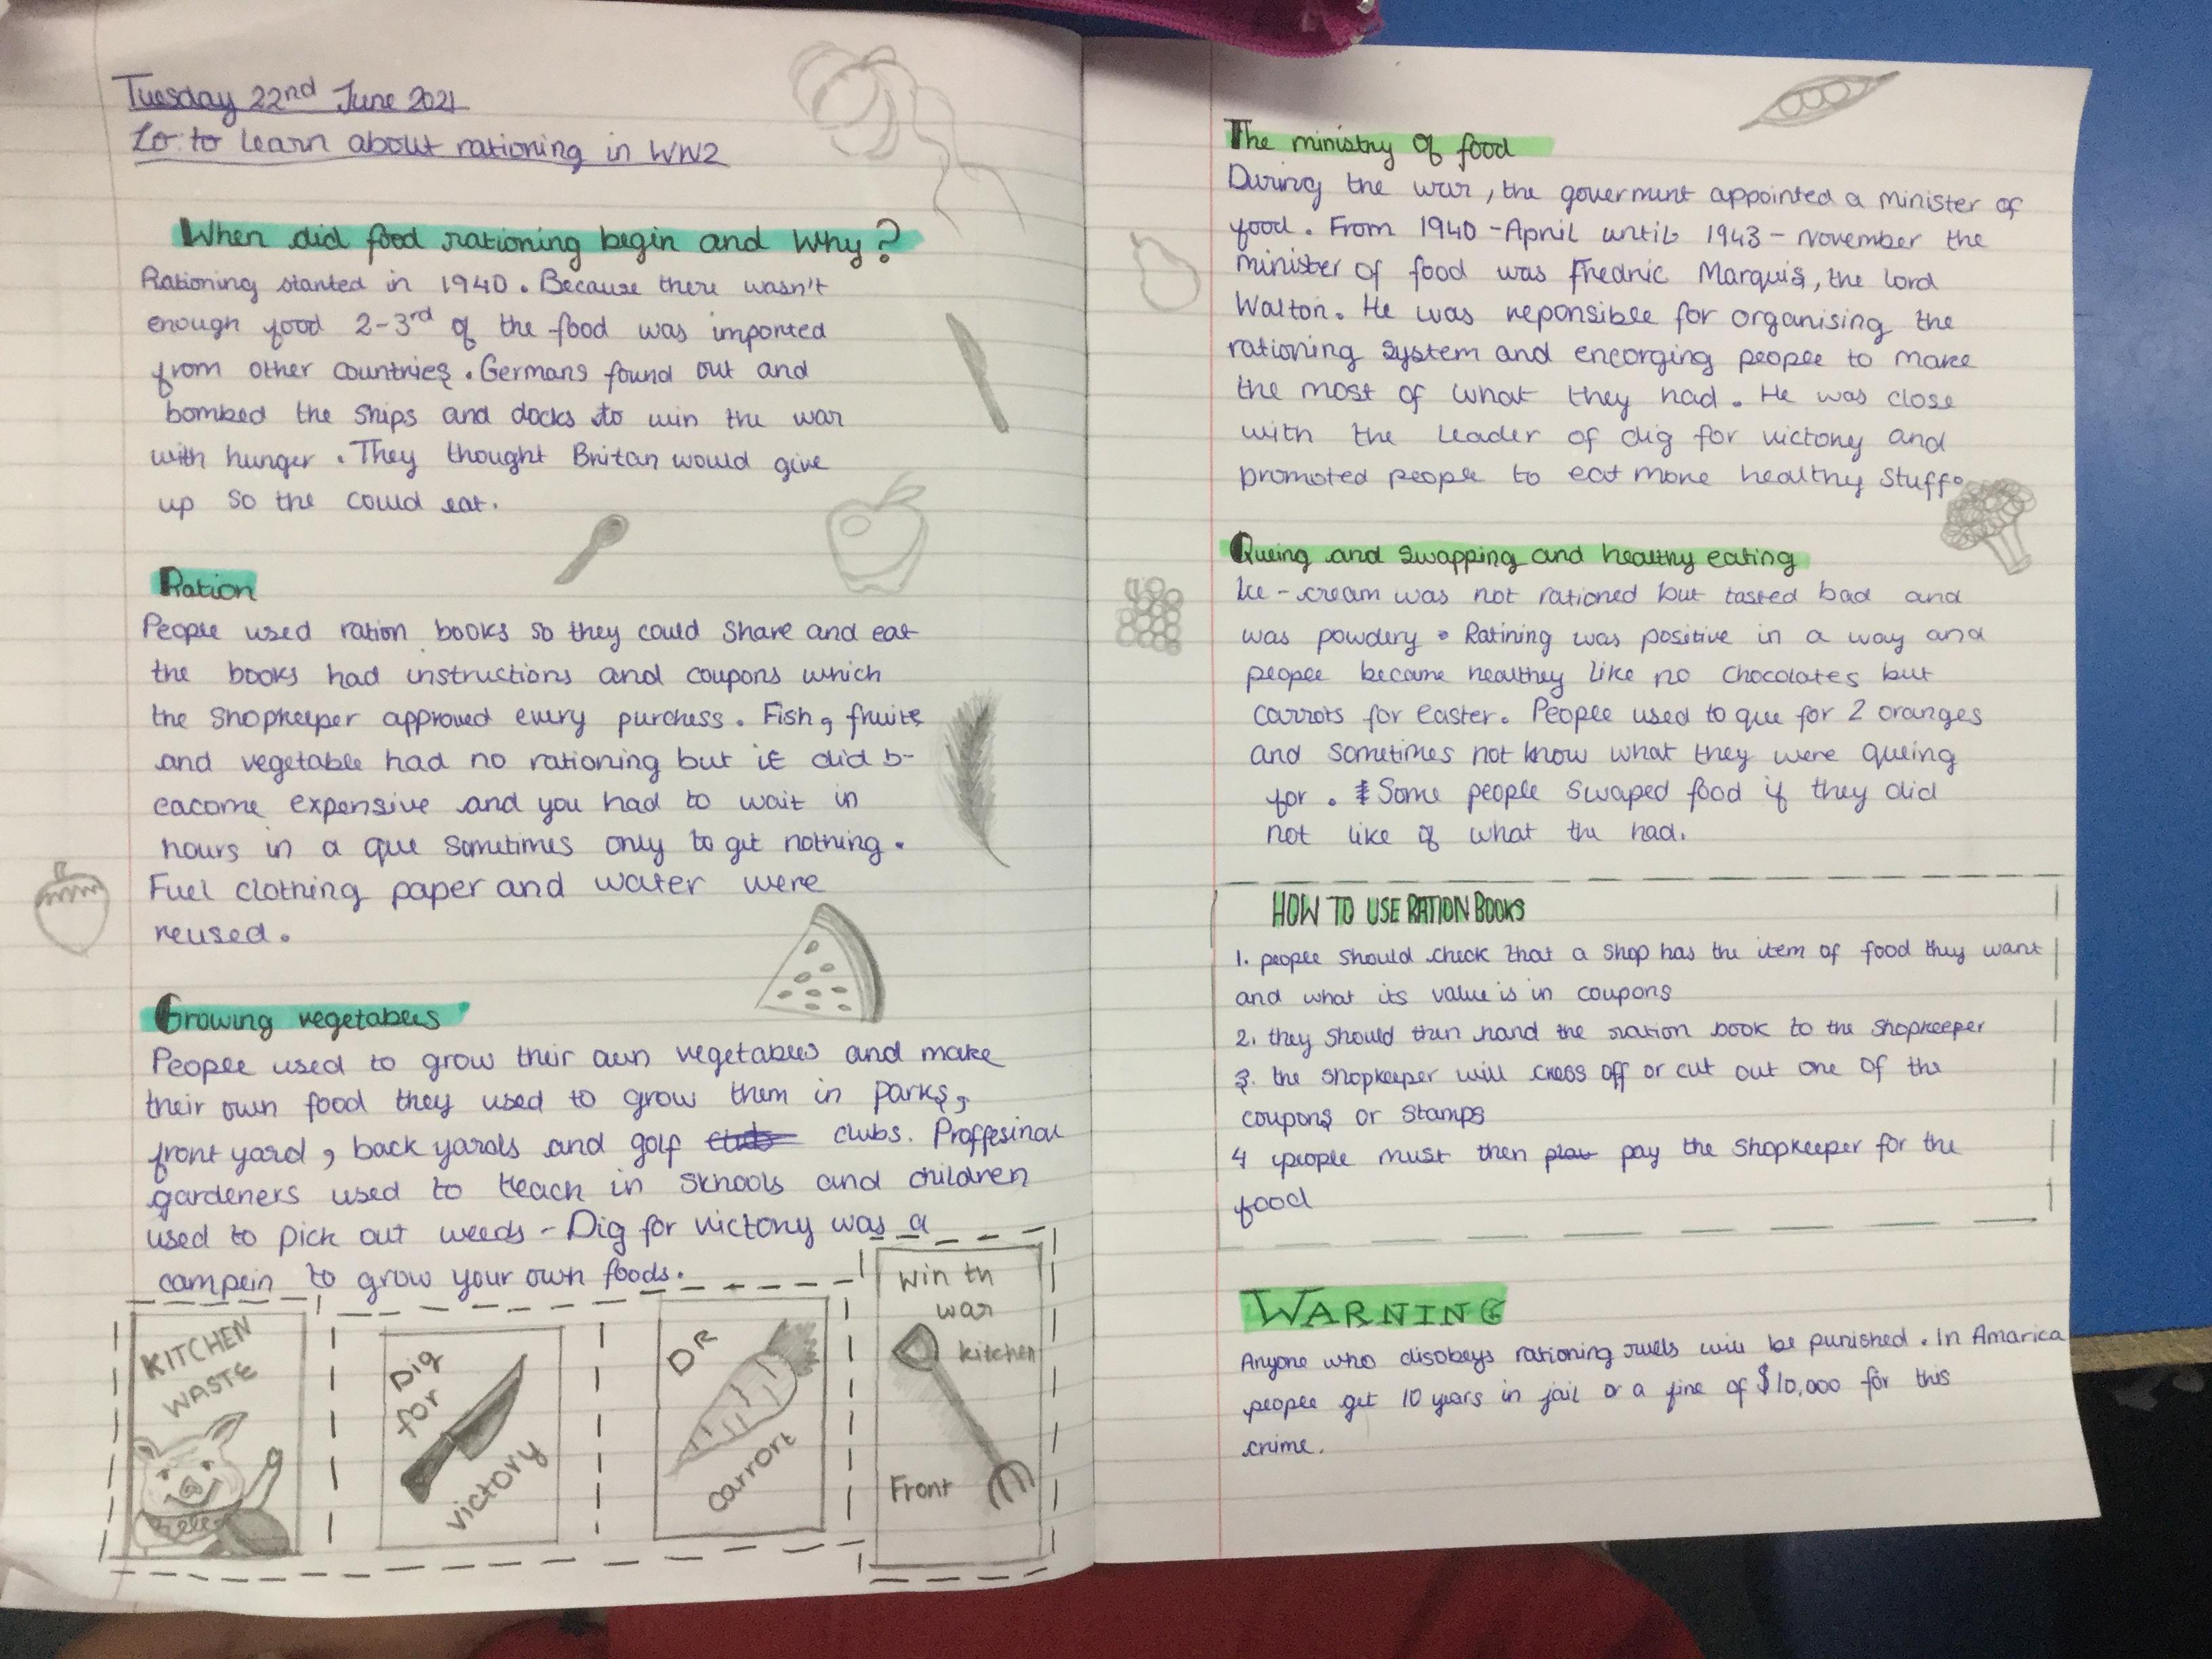 Tuesday 22nd June 2021
Lo: to learn about rationing in WW2
When did food rationing begin and Why?
Rationing started in 1940. Because there wasn't
enough food 2-3rd of the food was imported
from other countries. Germans found out and
bombed the ships and docks to win the war
with hunger. They thought Britan would give
up so the could eat.
Ration
People used ration books so they could share and eat
the books had instructions and coupons which
the shopkeeper approved every purchess. Fish, fruits
and vegetable had no rationing but it did b-
eacome expensive and you had to wait in
hours in a que sometimes only to get nothing.
Fuel clothing paper and water were
reused.
Growing vegetables
People used to grow their own vegetables and make
their own food they used to grow them in parks,
front yard, back yards and golf clubs clubs. Proffesinal
gardeners used to teach in schools and children
used to pick out weeds - Dig for victory was a
campein to grow your own foods.
KITCHEN
WASTE
Dig
for
victory
DR
carrort
Win th
war
kitchen
Front
The ministry of food
During the war, the goverment appointed a minister of
food. From 1940 - April until 1943 - november the
minister of food was Fredric Marquis, the lord
Walton. He was reponsible for organising the
rationing system and encorging people to make
the most of what they had. He was close
with the leader of dig for victory and
promoted people to eat more healthy stuff.
Queing and swapping and healthy eating
Ice-cream was not rationed but tasted bad and
was powdery. Ratining was positive in a way and
people became healthey like no chocolates but
carrots for easter. People used to que for 2 oranges
and sometimes not know what they were queing
for. Some people swaped food if they did
not like of what the had.
HOW TO USE RATION BOOKS
1. people should check that a shop has the item of food they want
and what its value is in coupons
2. they should then hand the ration book to the shopkeeper
3. the shopkeeper will cross off or cut out one of the
coupons or stamps
4 people must then play pay the shopkeeper for the
food
WARNING
Anyone who disobeys rationing ruels will be punished. In Amarica
people get 10 years in jail or a fine of $10,000 for this
crime.